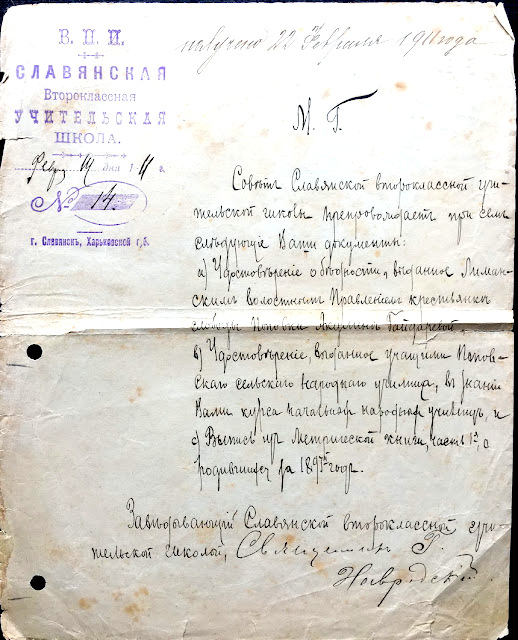 В. П. И.
СЛАВЯНСКАЯ
Второклассная
УЧИТЕЛЬСКАЯ
ШКОЛА.
Февр. 14 дня 1911 г.
№ 14.
г. Славянск, Харьковской г.
получено 22 Февраля 1911 года
М. Г.
Совѣтъ Славянской второклассной учи-
тельской школы препровождаетъ при семъ
слѣдующіе Ваши документы:
а) Удостовѣреніе о бѣдности, выданное Лиман-
скимъ волостнымъ Правленіемъ крестьянкѣ
слободы Поповки Акулинѣ Гайдаревой,
в) Удостовѣреніе, выданное учащими Попов-
скаго сельскаго народнаго училища, в знаніи
Вами курса начальных народных училищъ, и
с) Выпись из Метрической книги, часть 1я, о
родившихся за 1897й годъ.
Завѣдывающій Славянской второклассной учи-
тельской школой, Священникъ Г.